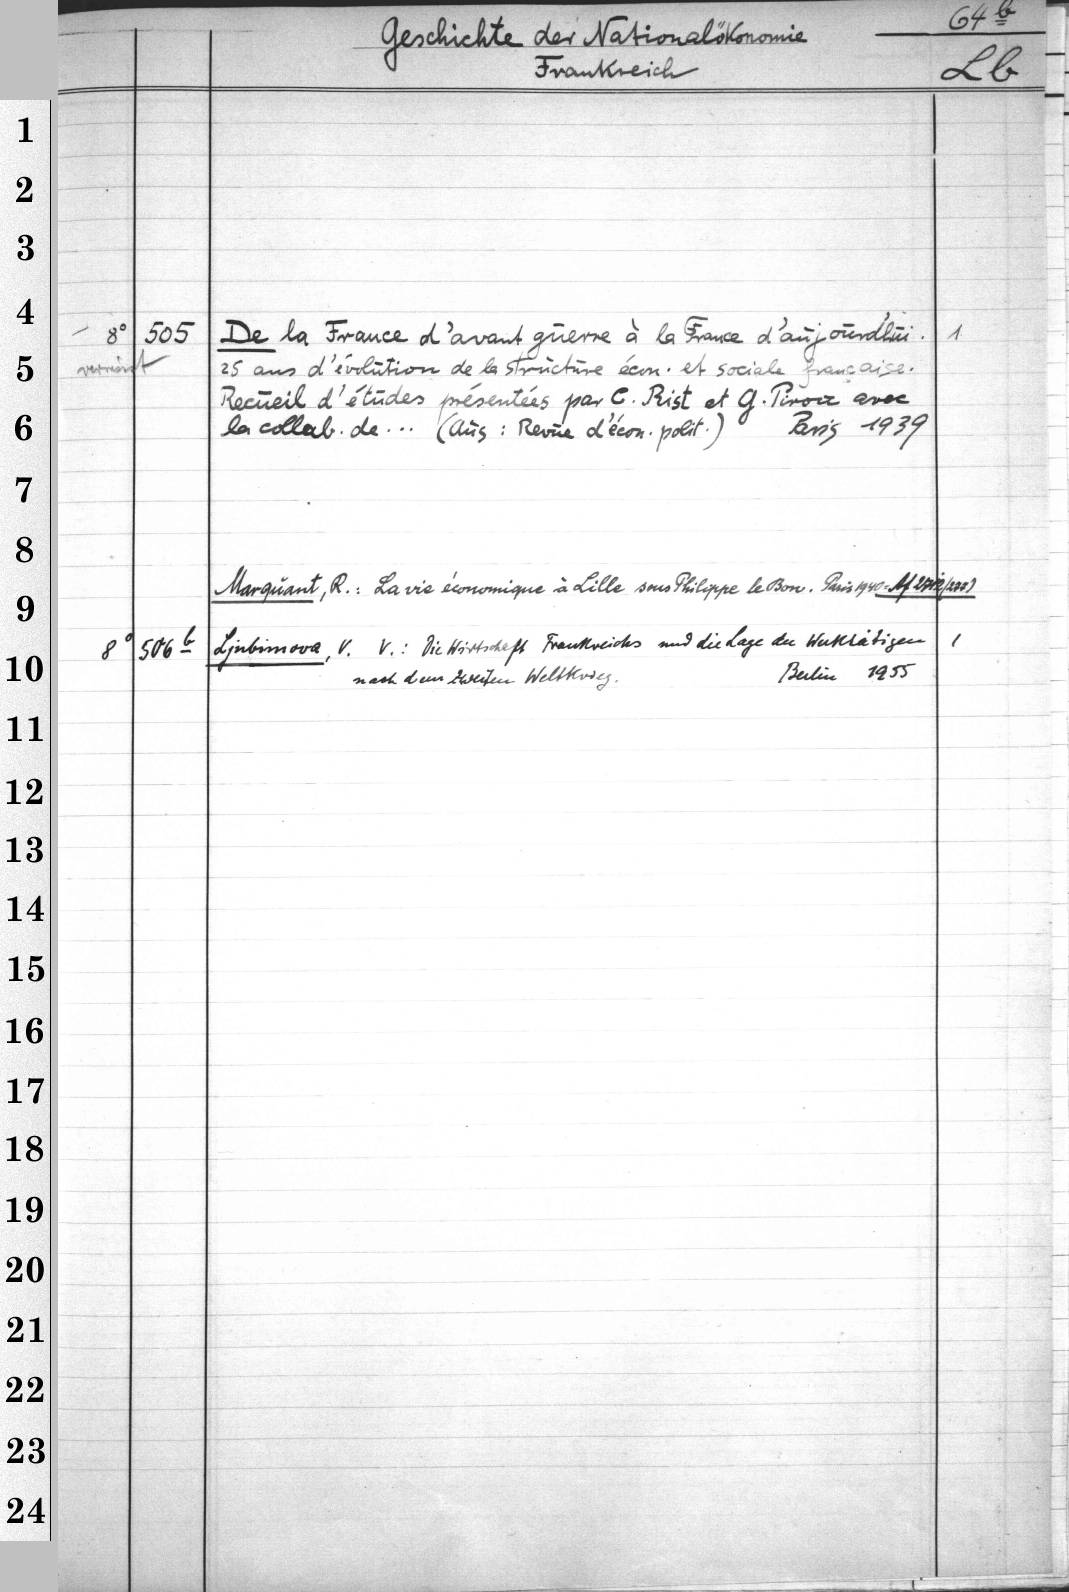 64 b
Geschichte der Nationalökonomie
Frankreich
Lb
1
2
3
4
8° 505 De la France d'avant guerre à la France d'aujourdhui. 1
5
25 ans d'évolution de la structure écon. et sociale française.
Recueil d'études présentées par C. Rist et G. Pirou avec
6
la collab. de ... (Aus: Revue d'écon. polit.) Paris 1939
7
8
Marquant, R.: La vie économique à Lille sous Philippe le Bon. Paris 1940 =
9
8° 506 b Ljubimova, V. V.: Die Wirtschaft Frankreichs und die Lage der Werktätigen 1
10
nach dem zweiten Weltkrieg. Berlin 1955
11
12
13
14
15
16
17
18
19
20
21
22
23
24